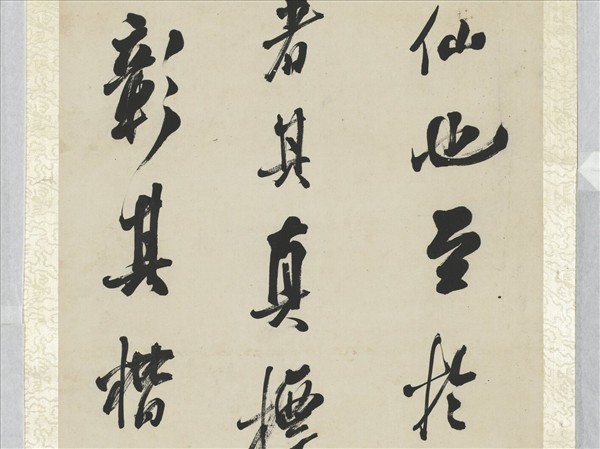 仙也至於
者其真
彰其楷